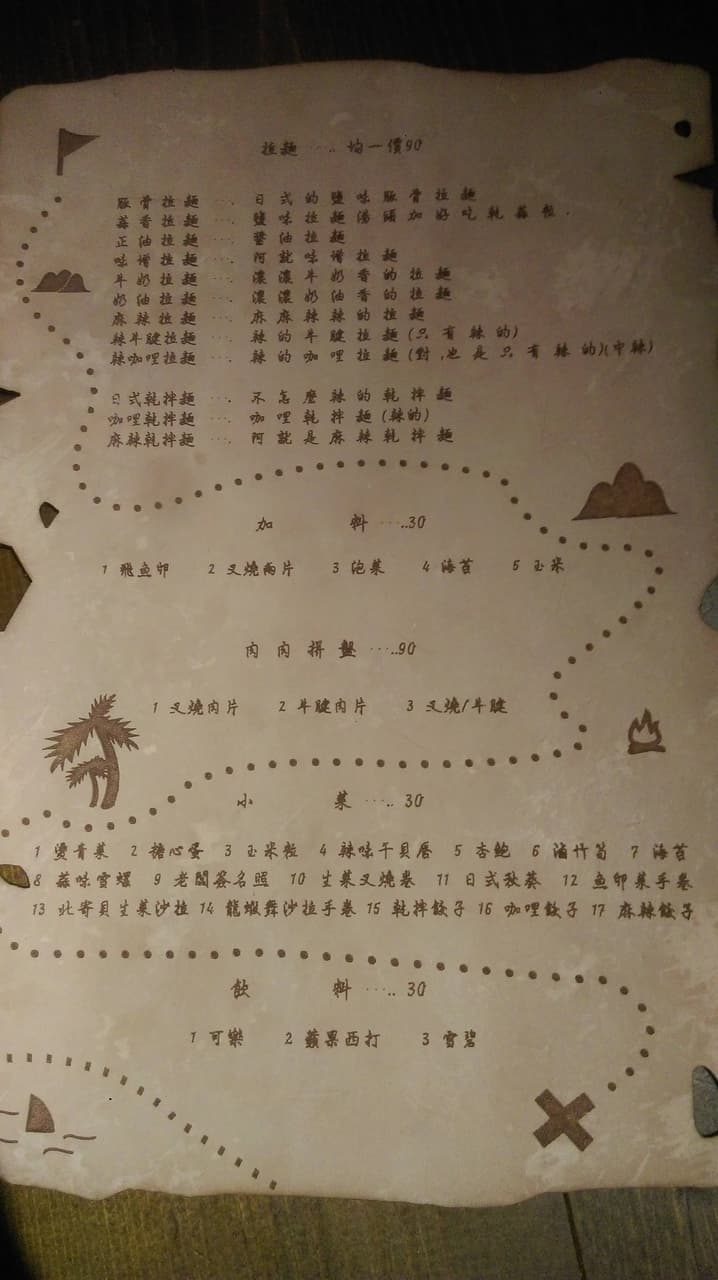 拉麵 ‧‧‧.. 均一價90
豚骨拉麵 ‧‧‧. 日式的鹽味豚骨拉麵
蒜香拉麵 ‧‧‧. 鹽味拉麵湯頭加好吃乾蒜粒.
正油拉麵 ‧‧‧. 醬油拉麵
味增拉麵 ‧‧‧. 阿就味增拉麵
牛奶拉麵 ‧‧‧. 濃濃牛奶香的拉麵
奶油拉麵 ‧‧‧. 濃濃奶油香的拉麵
麻辣拉麵 ‧‧‧. 麻麻辣辣的拉麵
辣牛腱拉麵 ‧‧‧. 辣的牛腱拉麵(只有辣的)
辣咖哩拉麵 ‧‧‧. 辣的咖哩拉麵(對,也是只有辣的)(中辣)
日式乾拌麵 ‧‧‧. 不怎麼辣的乾拌麵
咖哩乾拌麵 ‧‧‧. 咖哩乾拌麵(辣的)
麻辣乾拌麵 ‧‧‧. 阿就是麻辣乾拌麵
加 料 ‧‧‧..30
1 飛魚卵 2 叉燒兩片 3 泡菜 4 海苔 5 玉米
肉肉拼盤 ‧‧‧..90
1 叉燒肉片 2 牛腱肉片 3 叉燒/牛腱
小 菜 ‧‧‧.. 30
1 燙青菜 2 糖心蛋 3 玉米粒 4 辣味干貝唇 5 杏鮑 6 滷竹筍 7 海苔
8 蒜味雪螺 9 老闆簽名照 10 生菜叉燒卷 11 日式秋葵 12 魚卵菜手卷
13 北寄貝生菜沙拉 14 龍蝦舞沙拉手卷 15 乾拌餃子 16 咖哩餃子 17 麻辣餃子
飲 料 ‧‧‧.. 30
1 可樂 2 蘋果西打 3 雪碧